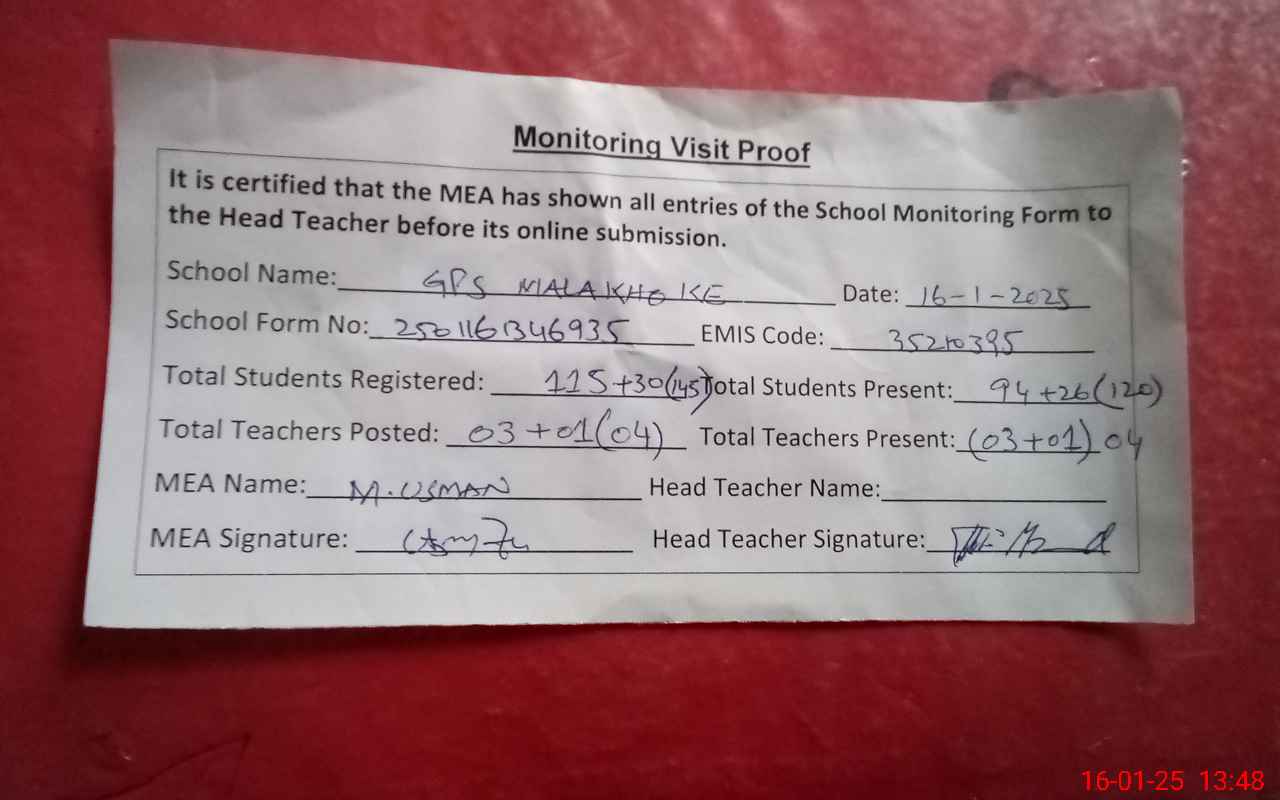 Monitoring Visit Proof
It is certified that the MEA has shown all entries of the School Monitoring Form to
the Head Teacher before its online submission.
School Name: GPS MALAKHO KE Date: 16-1-2025
School Form No: 2501161346935 EMIS Code: 35210395
Total Students Registered: 115+30(145) Total Students Present: 94+26(120)
Total Teachers Posted: 03+01(04) Total Teachers Present: (03+01) 04
MEA Name: M. USMAN Head Teacher Name:
MEA Signature: Head Teacher Signature:
16-01-25 13:48